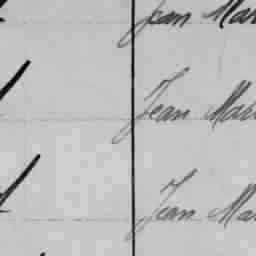 Jean Mar
Jean Mar
Jean Mar